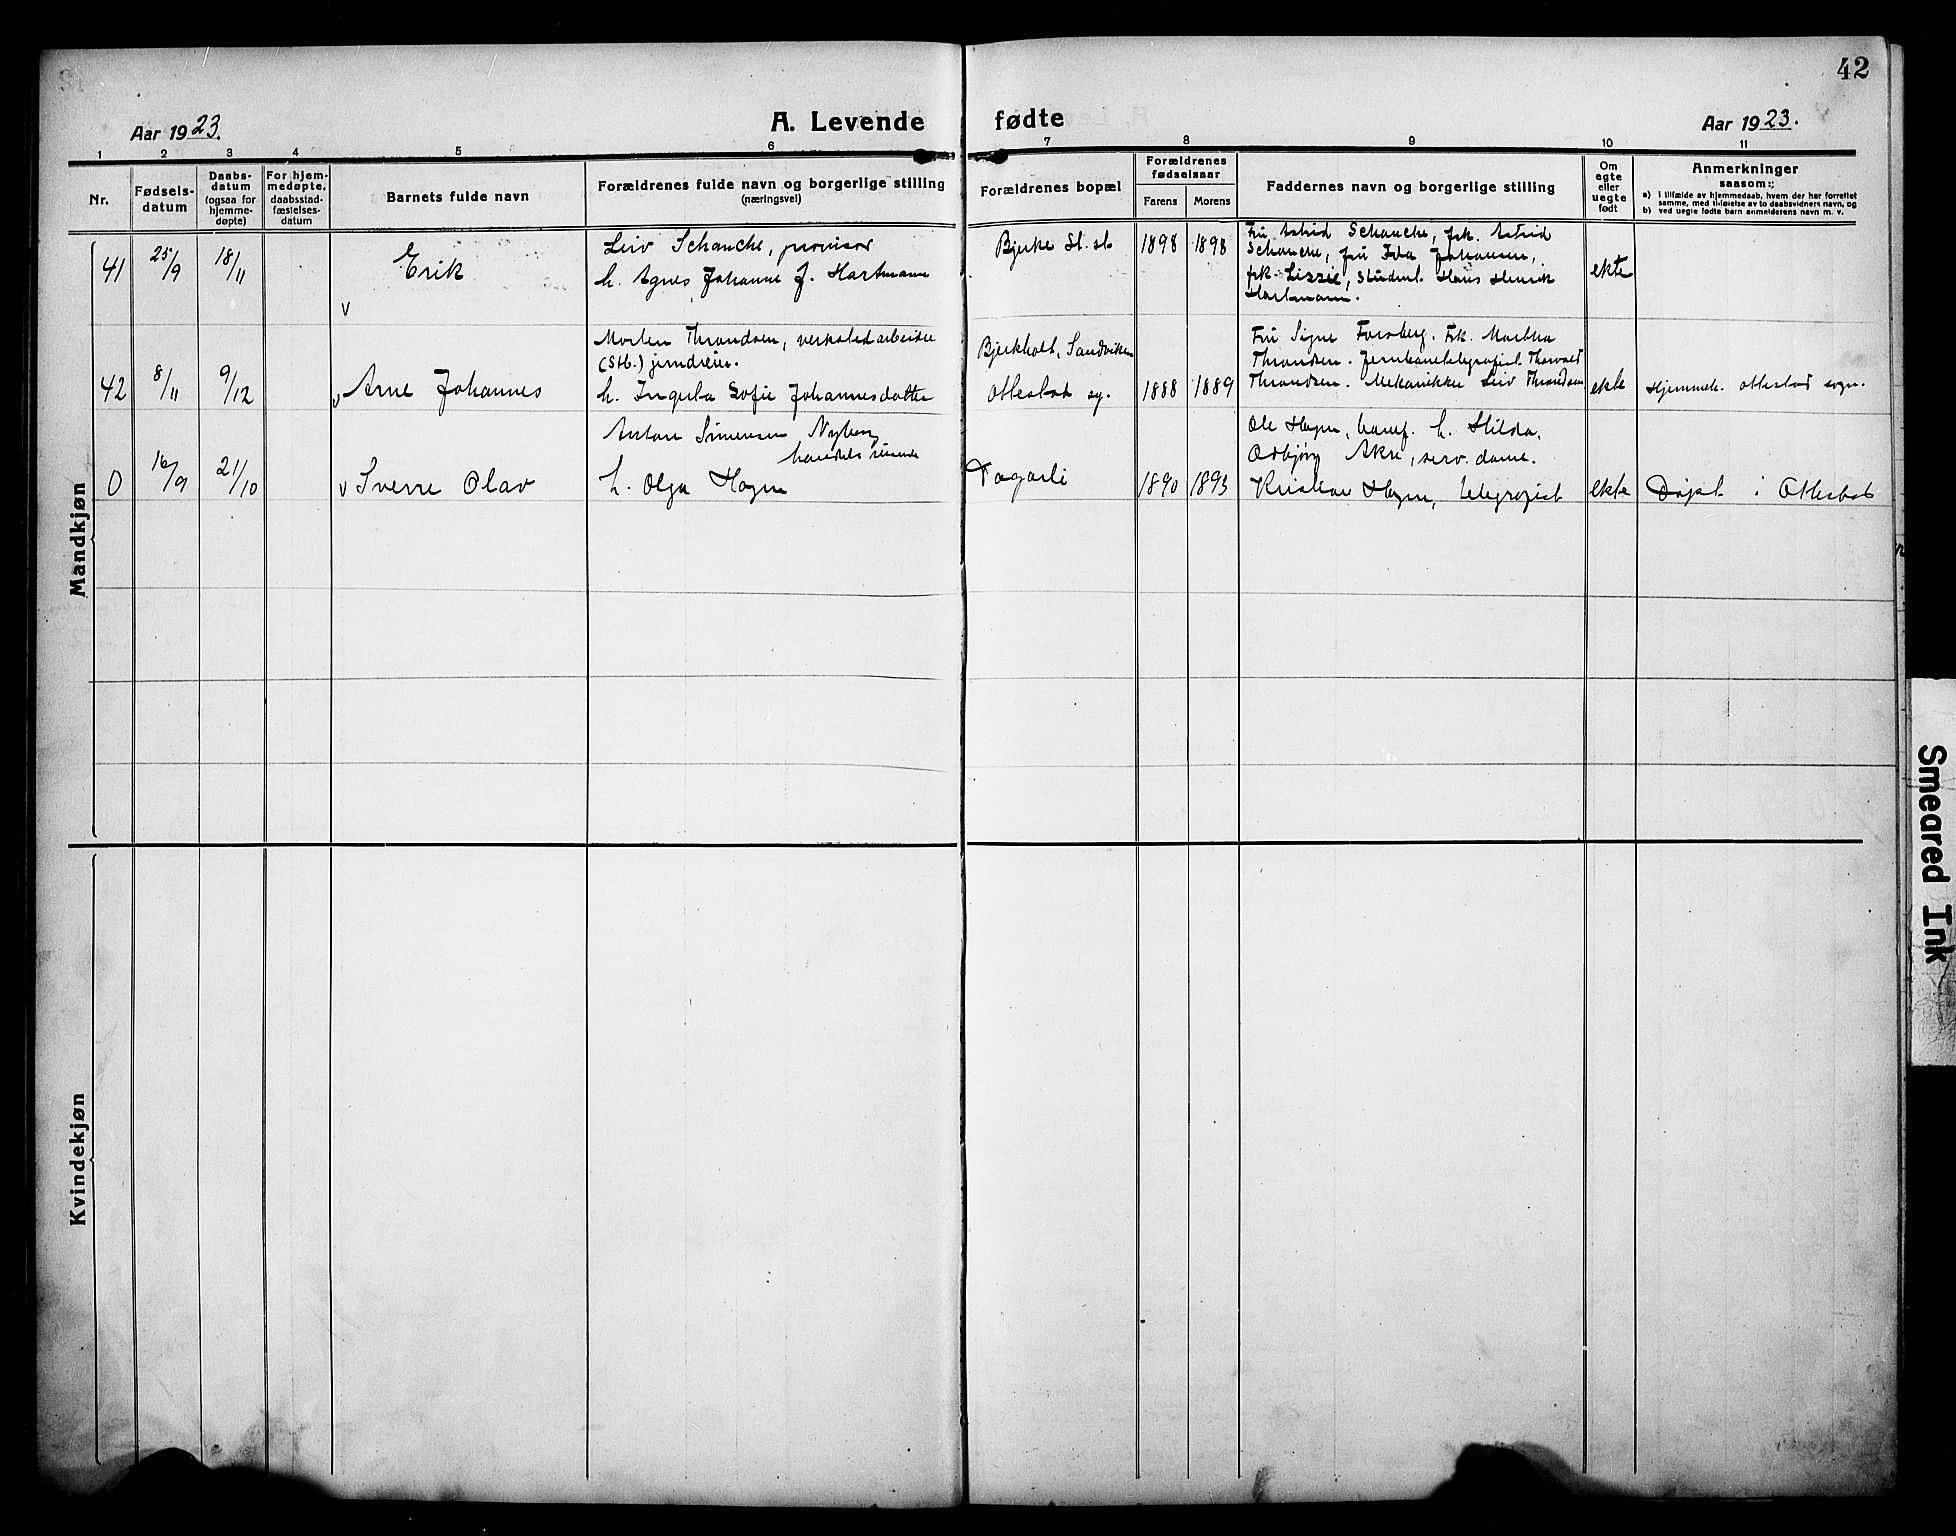 42
Aar 1923.
A. Levende fødte
Aar 1923.
1 2 3 4 5 6 7 8 9 10 11
Nr.
Fødsels-
datum
Daabs-
datum
(ogsaa for
hjemme-
døpte)
For hjem-
medøpte,
daabsstad-
fæstelses-
datum
Barnets fulde navn
Forældrenes fulde navn og borgerlige stilling
(næringsvei)
Forældrenes bopæl
Forældrenes
fødselsaar
Farens Morens
Faddernes navn og borgerlige stilling
Om
egte
eller
uegte
født
Anmerkninger
saasom:
a) i tilfælde av hjemmedaab, hvem der har forrettet
samme, med tilføielse av to daabsvidners navn, og
b) ved uegte fødte barn anmelderens navn m. v.
Mandkjøn
41 25/9 18/11 v Erik
Leiv Schanche, provisor
h. Agnes Johanne J. Hartmann
Bjerke St. st 1898 1898
Fru Astrid Schanche, frk. Astrid
Schanche, fru Johansen,
frk. Lizzie, student. Hans Henrik
Hartmann.
ekte
42 8/11 9/12 v Arne Johannes
Morten Throndsen, verkstedarbeider
(Stb.) jerndreier.
h. Ingerba Sofie Johannesdatter
Bjerkholt, Sandviken
Ottestad sg. 1888 1889
Fru Signe Forsberg. Frk. Martha
Throndsen. Jernbanetelegrafist Thorvald
Throndsen. Mekanikker Leiv Throndsen
ekte Hjemmeh. Ottestad sogn.
0 16/9 21/10 v Sverre Olav
Anton Simensen Nyberg,
handelsreisende
h. Olga Hagen
Fagerli 1890 1893
Ole Hagen, h. Hilda,
Asbjørg Akre, serv. dame.
Kristian Hagen, telegrafist
ekte Døpt i Ottestad
Kvindekjøn
Smeared Ink